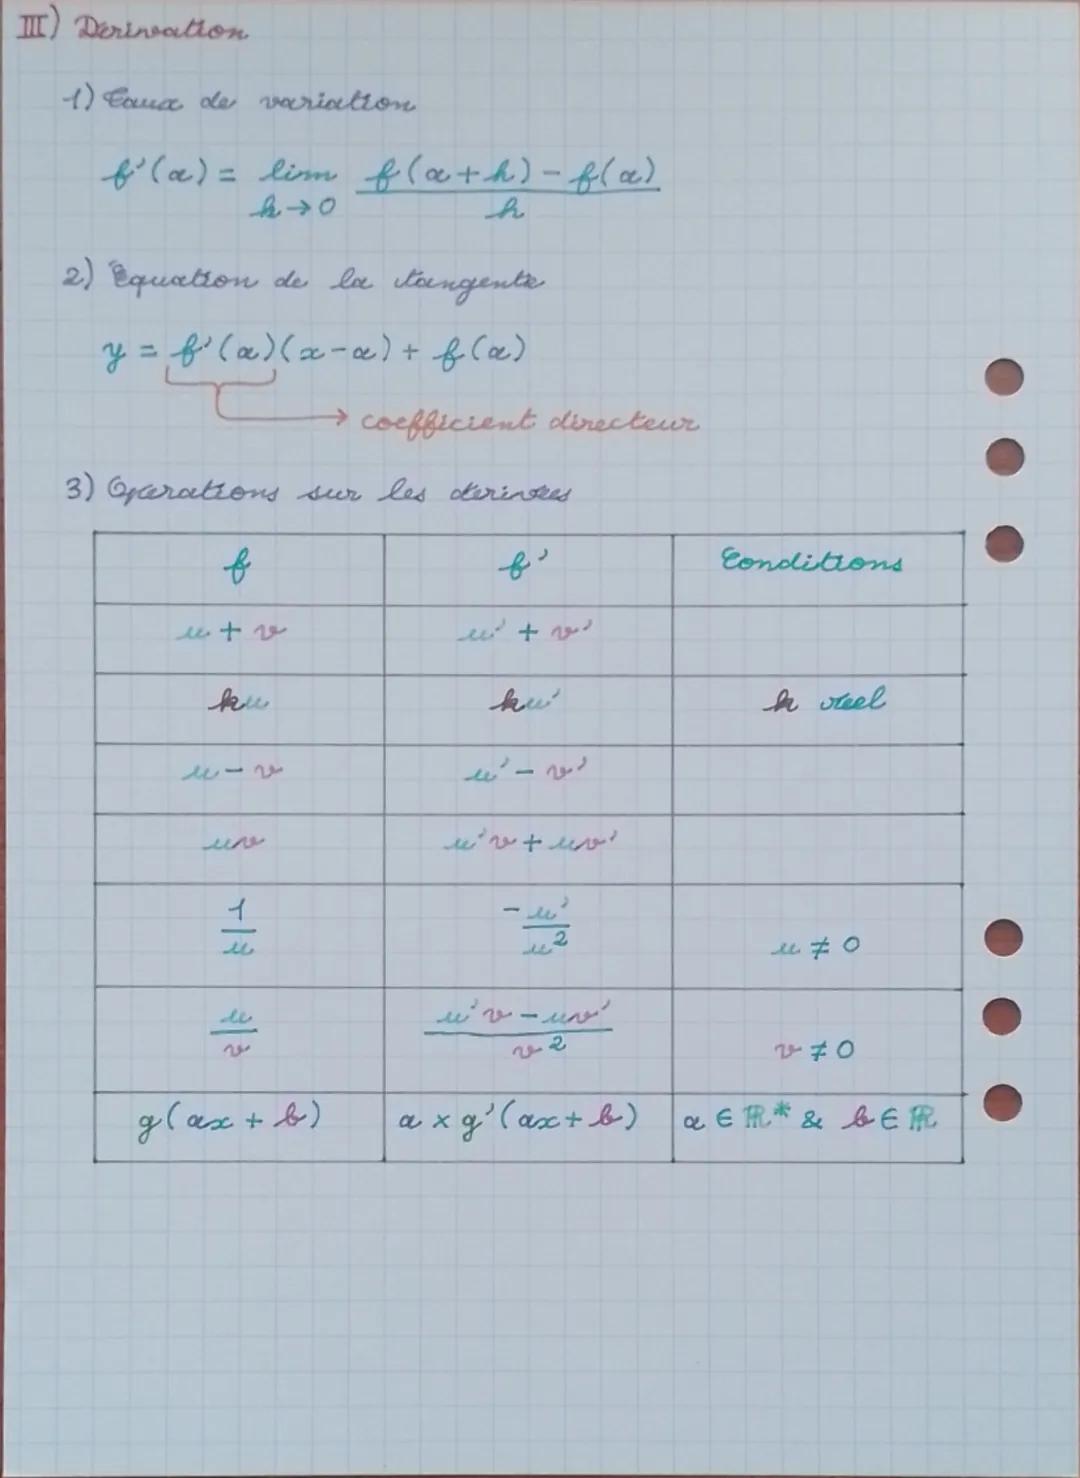 III) Dérivation
1) Taux de variation
f'(a) = lim f(a+h) - f(a)
h→0 h
2) Equation de la tangente
y = f'(a)(x-a) + f(a)
→ coefficient directeur
3) Opérations sur les dérivées
f f' Conditions
u + v u' + v'
ku ku' k réel
u - v u' - v'
uv u'v + uv'
1/u -u'/u² u ≠ 0
u/v u'v - uv'/v² v ≠ 0
g(ax + b) a × g'(ax + b) a ∈ ℝ* & b ∈ ℝ